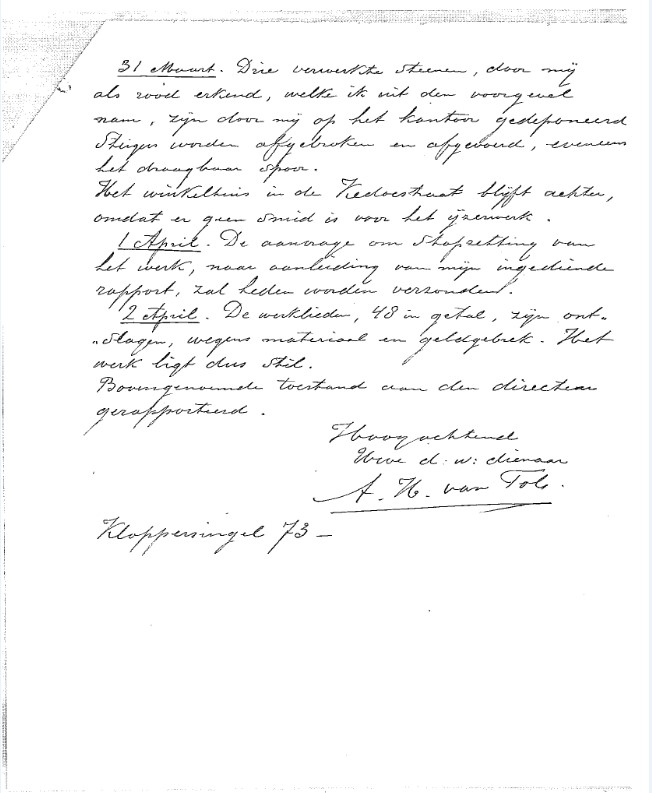 31 Maart. Drie verwerkte steenen, door mij
als rood erkend, welke ik uit den voorgevel
nam, zijn door mij op het kantoor gedeponeerd
Steigers worden afgebroken en afgevoerd, eveneens
het draagbaar spoor.
Het winkelhuis in de blijft achter,
omdat er geen smid is voor het ijzerwerk.
1 April. De aanvrage om stopzetting van
het werk, naar aanleiding van mijn ingediende
rapport, zal heden worden verzonden.
2 April. De werklieden, 48 in getal, zijn ont-
"slagen, wegens materiaal en geldgebrek. Het
werk ligt dus stil.
Bovengenoemde toestand aan den directeur
gerapporteerd.
Hoogachtend
Uwe d: w: dienaar
A. H. van Tol.
Kloppersingel 73 —